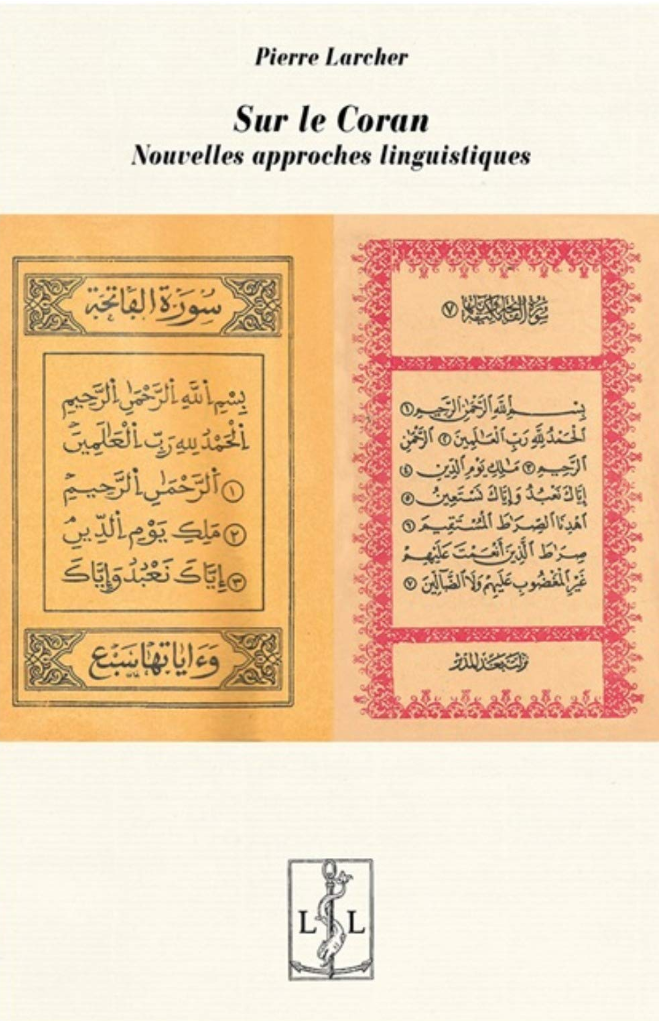 Pierre Larcher
Sur le Coran
Nouvelles approches linguistiques
سُورَةُ الفَاتِحَةِ
بِسْمِ اللَّهِ الرَّحْمَٰنِ الرَّحِيمِ
الْحَمْدُ لِلهِ رَبِّ الْعَالَمِينَ
① الرَّحْمَٰنِ الرَّحِيمِ
② مَلِكِ يَوْمِ الدِّينِ
③ إِيَّاكَ نَعْبُدُ وَإِيَّاكَ
وَءَايَاتُهَا سَبْعٌ
بِسْمِ اللَّهِ الرَّحْمَٰنِ الرَّحِيمِ ①
الْحَمْدُ لِلَّهِ رَبِّ الْعَالَمِينَ ② الرَّحْمَٰنِ
الرَّحِيمِ ③ مَالِكِ يَوْمِ الدِّينِ ④
إِيَّاكَ نَعْبُدُ وَإِيَّاكَ نَسْتَعِينُ ⑤
اهْدِنَا الصِّرَاطَ الْمُسْتَقِيمَ ⑥
صِرَاطَ الَّذِينَ أَنْعَمْتَ عَلَيْهِمْ
غَيْرِ الْمَغْضُوبِ عَلَيْهِمْ وَلَا الضَّالِّينَ ⑦
نزلت بعد المدثر
L L